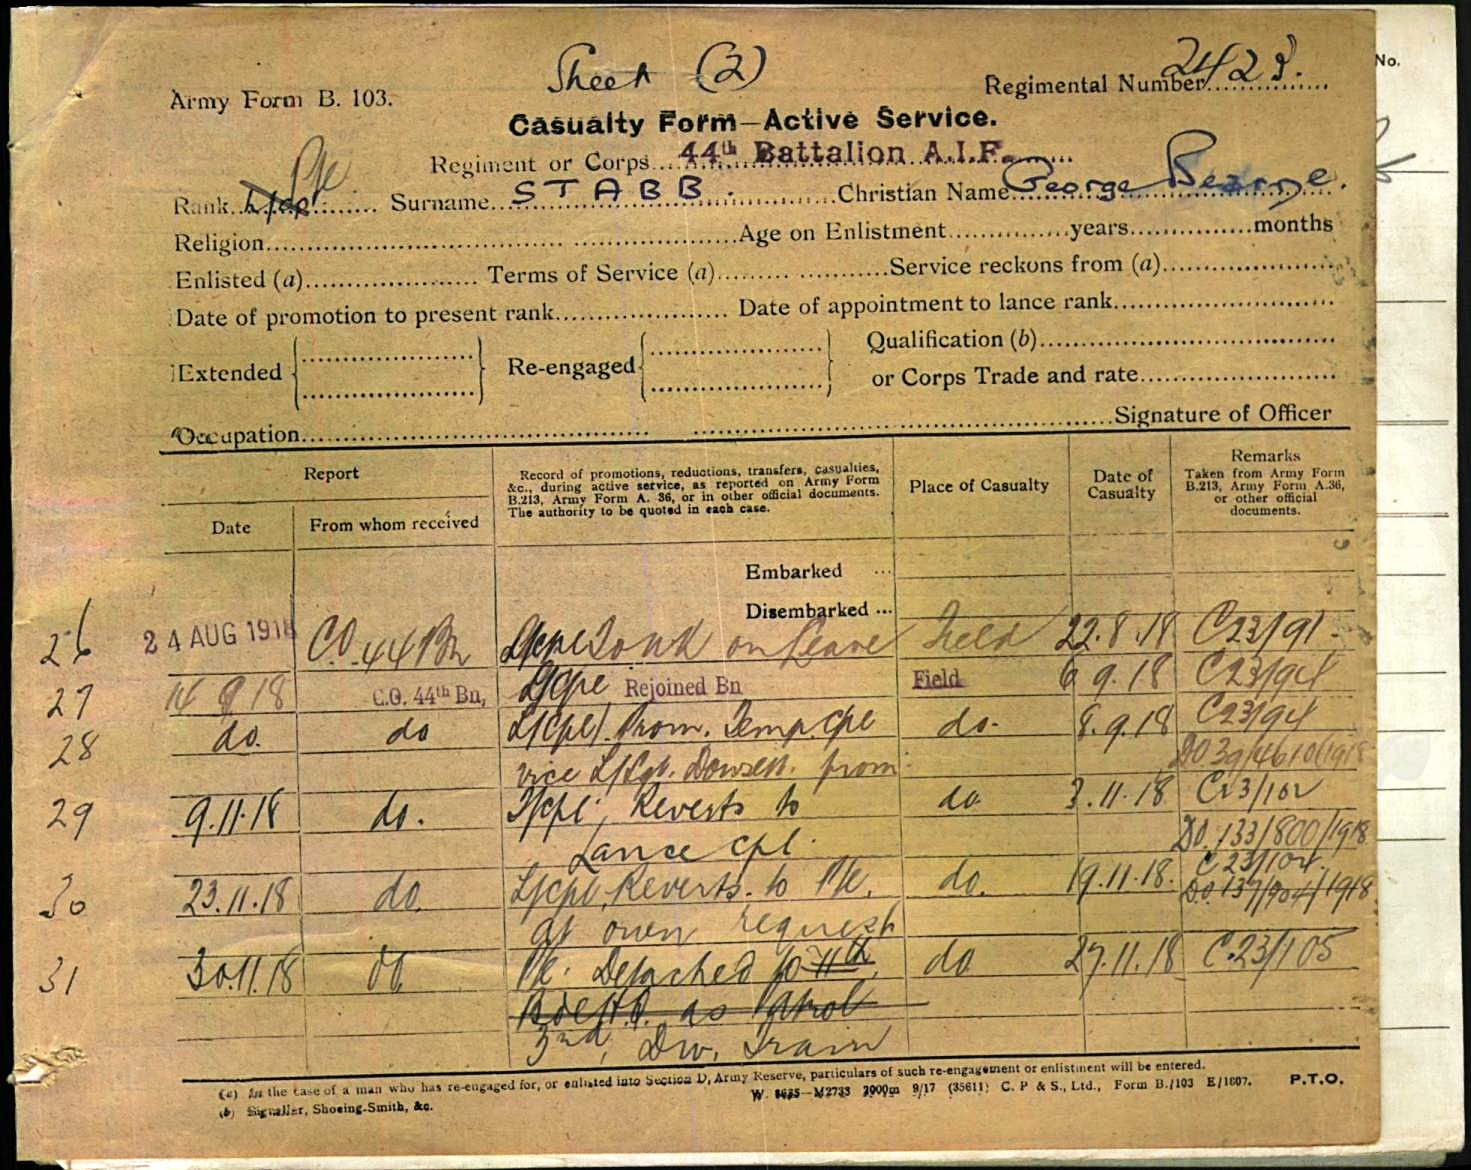 Sheet (2)
Army Form B. 103.
Regimental Number 2423.
Casualty Form—Active Service.
Regiment or Corps 44th Battalion A.I.F.
Rank L/Cpl Pte Surname STABB. Christian Name George Bearne.
Religion Age on Enlistment years months
Enlisted (a) Terms of Service (a) Service reckons from (a)
Date of promotion to present rank Date of appointment to lance rank
Extended Re-engaged Qualification (b)
or Corps Trade and rate
Occupation Signature of Officer
Report
Date From whom received
Record of promotions, reductions, transfers, casualties,
&c., during active service, as reported on Army Form
B.213, Army Form A. 36, or in other official documents.
The authority to be quoted in each case.
Place of Casualty
Date of
Casualty
Remarks
Taken from Army Form
B.213, Army Form A.36,
or other official
documents.
Embarked ...
Disembarked ...
26 24 AUG 1918 C.O. 44 Bn L/Cpl To U.K on Leave Field 22.8.18 C23/91
27 14 9 18 C.O. 44th Bn, L/Cpl Rejoined Bn Field 6 9.18 C23/94
28 do. do L/Cpl Prom. Temp. Cpl do. 8.9.18 C23/94
vice L/Sgt. from DO 39/4610/1918
29 9.11.18 do. T/Cpl, Reverts to do 3.11.18 C23/102
Lance Cpl. DO.133/800/1918
30 23.11.18 do. L/Cpl. Reverts. to Pte. do. 19.11.18. C23/104.
at own request DO.137/904/1918
31 30.11.18 do Pte. Detached to 11th do 27.11.18 C.23/105
Bde H.Q. as Patrol
3rd, Div. Train
(a) In the case of a man who has re-engaged for, or enlisted into Section D, Army Reserve, particulars of such re-engagement or enlistment will be entered.
(b) Signaller, Shoeing-Smith, &c.
W. 8635—M2733 2000m 9/17 (35611) C. P & S., Ltd., Form B./103 E/1607.
P.T.O.
No.